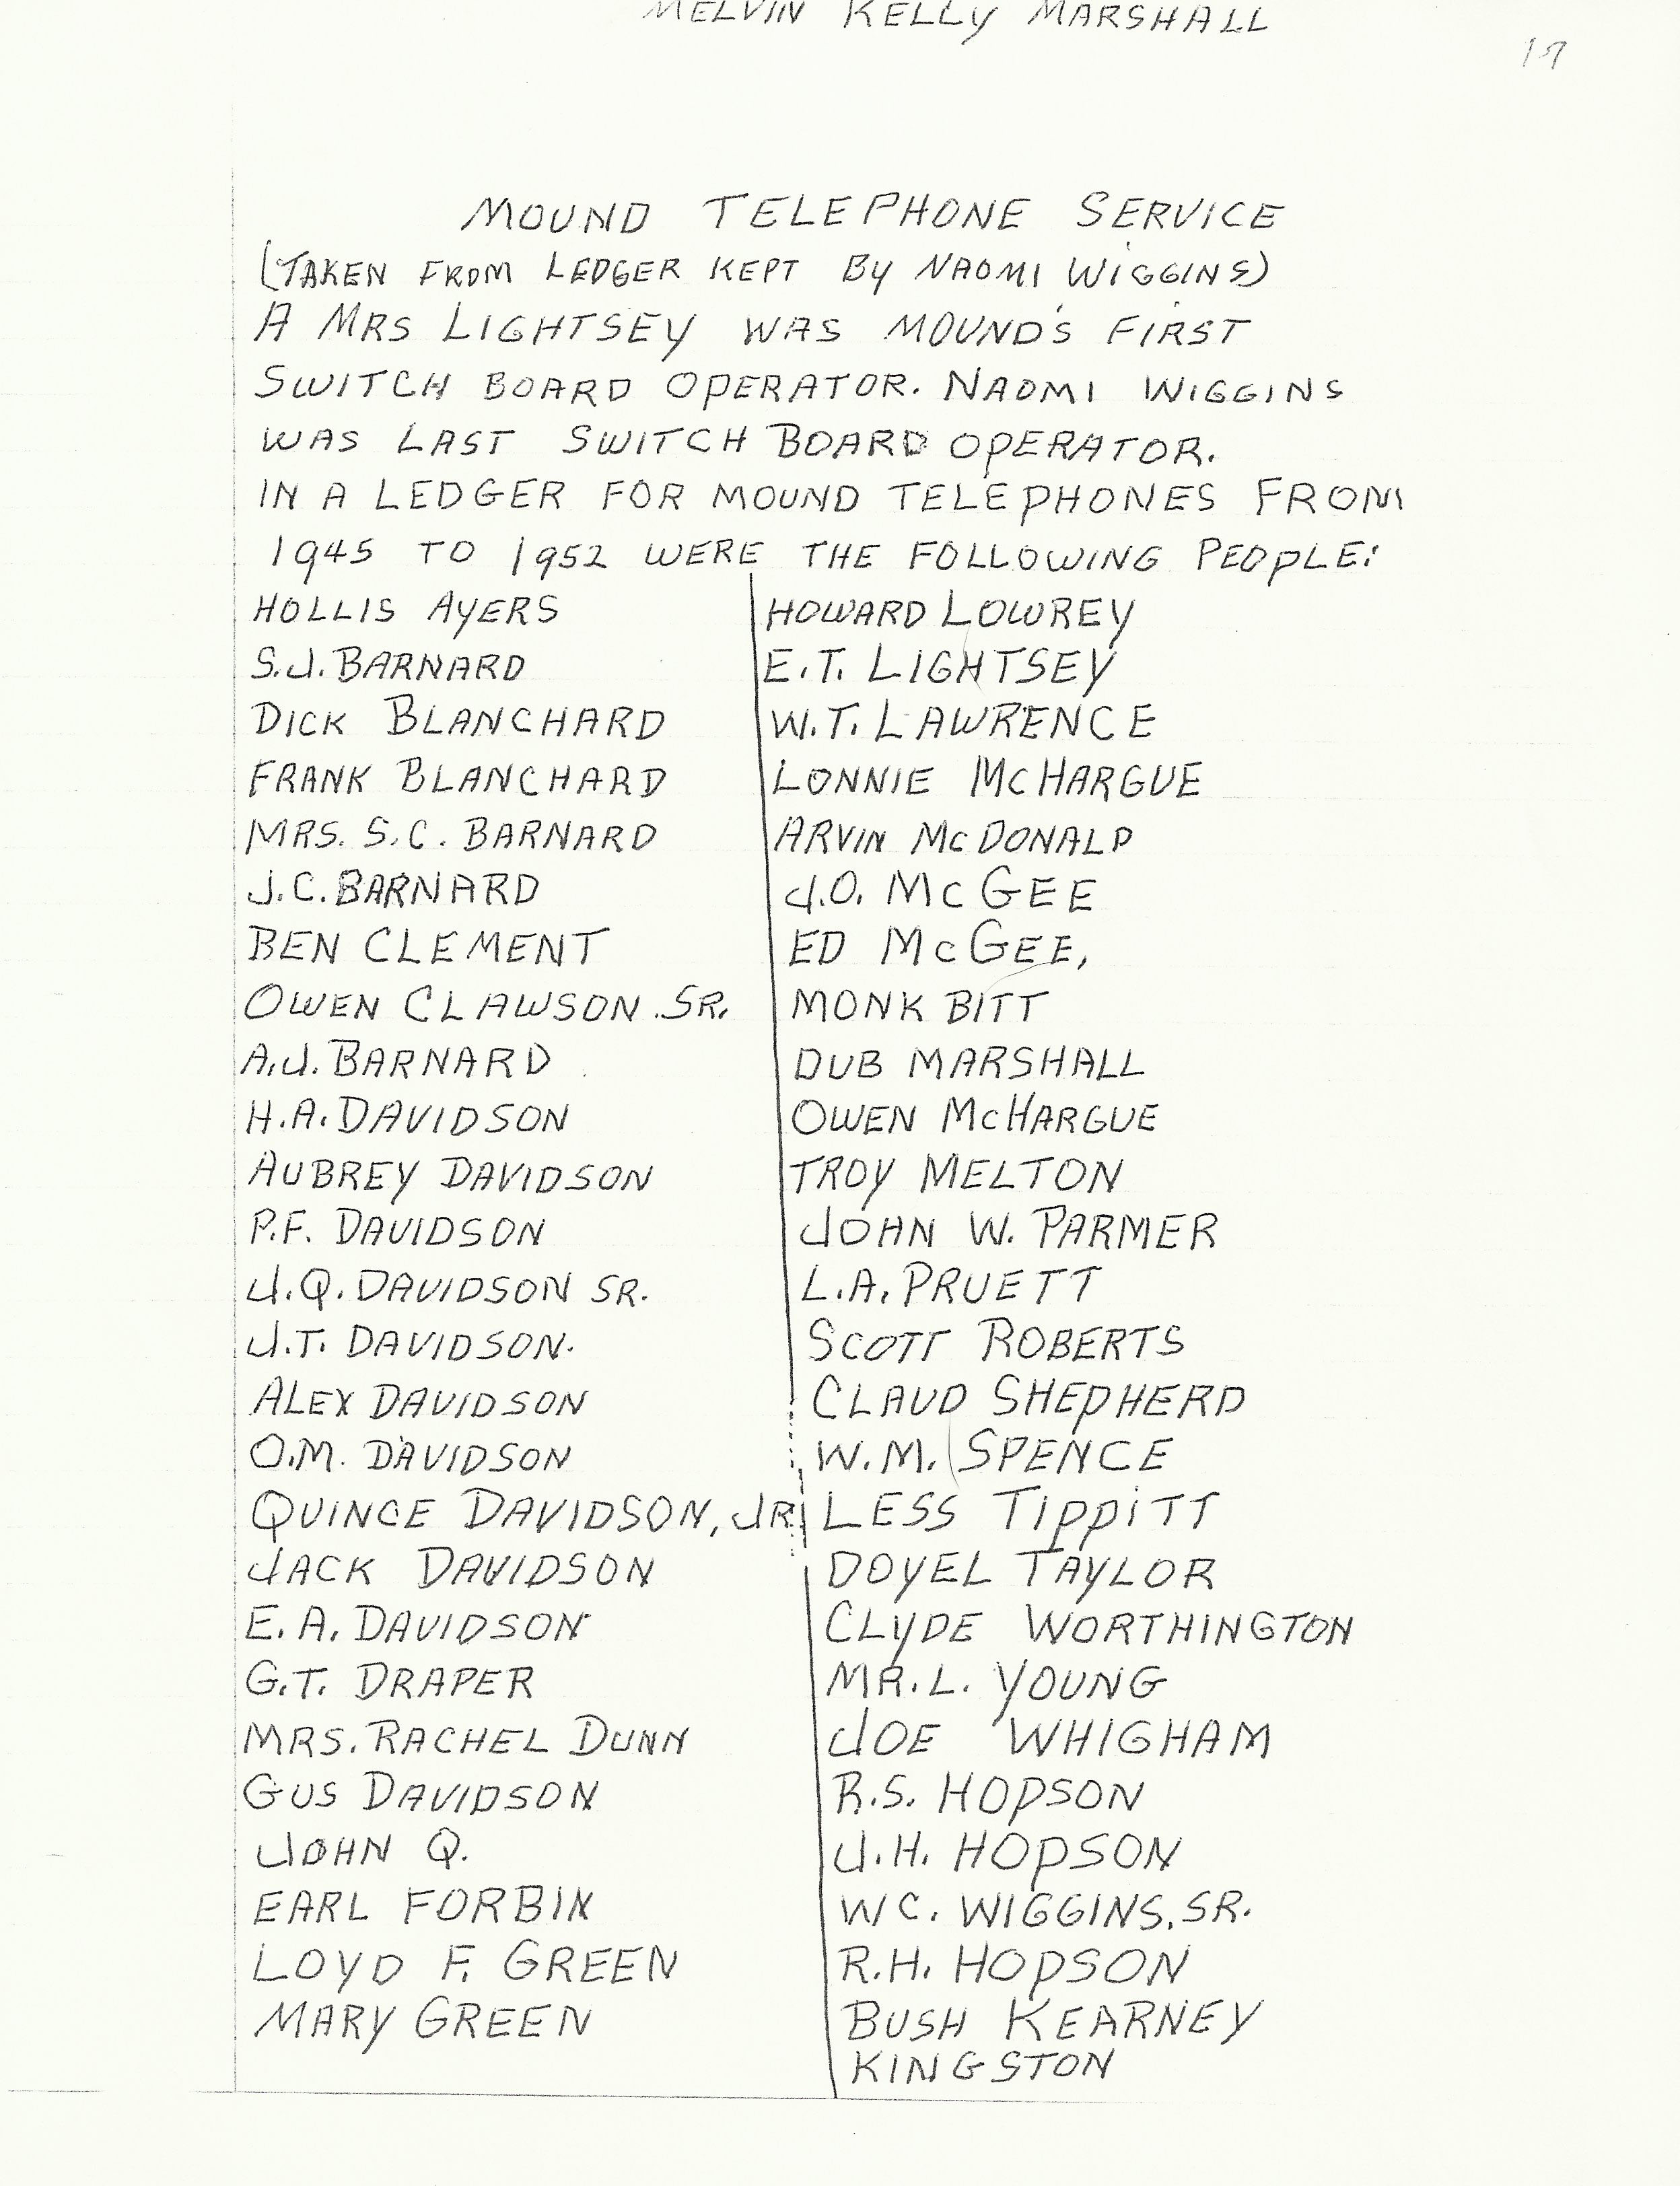 MELVIN KELLY MARSHALL
17
MOUND TELEPHONE SERVICE
(TAKEN FROM LEDGER KEPT BY NAOMI WIGGINS)
A MRS LIGHTSEY WAS MOUND'S FIRST
SWITCH BOARD OPERATOR. NAOMI WIGGINS
WAS LAST SWITCH BOARD OPERATOR.
IN A LEDGER FOR MOUND TELEPHONES FROM
1945 TO 1952 WERE THE FOLLOWING PEOPLE:
HOLLIS AYERS
S.J. BARNARD
DICK BLANCHARD
FRANK BLANCHARD
MRS. S.C. BARNARD
J.C. BARNARD
BEN CLEMENT
OWEN CLAWSON. SR.
A.J. BARNARD
H.A. DAVIDSON
AUBREY DAVIDSON
P.F. DAVIDSON
J.Q. DAVIDSON SR.
J.T. DAVIDSON.
ALEX DAVIDSON
O.M. DAVIDSON
QUINCE DAVIDSON, JR.
JACK DAVIDSON
E.A. DAVIDSON
G.T. DRAPER
MRS. RACHEL DUNN
GUS DAVIDSON
JOHN Q.
EARL FORBIN
LOYD F. GREEN
MARY GREEN
HOWARD LOWREY
E.T. LIGHTSEY
W.T. LAWRENCE
LONNIE MCHARGUE
ARVIN McDONALD
J.O. McGEE
ED McGEE,
MONK BITT
DUB MARSHALL
OWEN McHARGUE
TROY MELTON
JOHN W. PARMER
L.A. PRUETT
SCOTT ROBERTS
CLAUD SHEPHERD
W.M. SPENCE
LESS TIPPITT
DOYEL TAYLOR
CLYDE WORTHINGTON
MR. L. YOUNG
JOE WHIGHAM
R.S. HOPSON
J.H. HOPSON
WC. WIGGINS, SR.
R.H. HOPSON
BUSH KEARNEY
KINGSTON